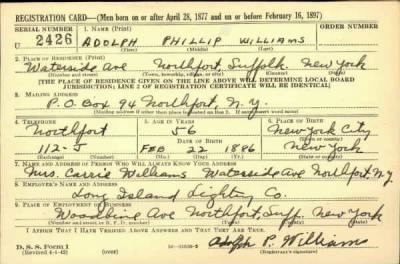 REGISTRATION CARD—(Men born on or after April 28, 1877 and on or before February 16, 1897)
SERIAL NUMBER
1. NAME (Print)
ORDER NUMBER
U 2426
ADOLPH PHILLIP WILLIAMS
(First) (Middle) (Last)
2. PLACE OF RESIDENCE (Print)
Waterside Ave Northport, Suffolk New York
(Number and street) (Town, township, village, or city) (County) (State)
[THE PLACE OF RESIDENCE GIVEN ON THE LINE ABOVE WILL DETERMINE LOCAL BOARD
JURISDICTION; LINE 2 OF REGISTRATION CERTIFICATE WILL BE IDENTICAL]
3. MAILING ADDRESS
P.O. Box 94 Northport, N.Y.
[Mailing address if other than place indicated on line 2. If same insert word same]
4. TELEPHONE
5. AGE IN YEARS
6. PLACE OF BIRTH
Northport
56
New York City
DATE OF BIRTH
(Town or county)
112-J
FEB 22 1886
New York
(Exchange) (Number)
(Mo.) (Day) (Yr.)
(State or country)
7. NAME AND ADDRESS OF PERSON WHO WILL ALWAYS KNOW YOUR ADDRESS
Mrs. Carrie Williams Waterside Ave Northport N.Y.
8. EMPLOYER'S NAME AND ADDRESS
Long Island Lighting Co.
9. PLACE OF EMPLOYMENT OR BUSINESS
Woodbine Ave Northport, Suff. New York
(Number and street or R. F. D. number) (Town) (County) (State)
I AFFIRM THAT I HAVE VERIFIED ABOVE ANSWERS AND THAT THEY ARE TRUE.
D. S. S. Form 1
(Revised 4-1-42) (over)
Adolph P. Williams
(Registrant's signature)